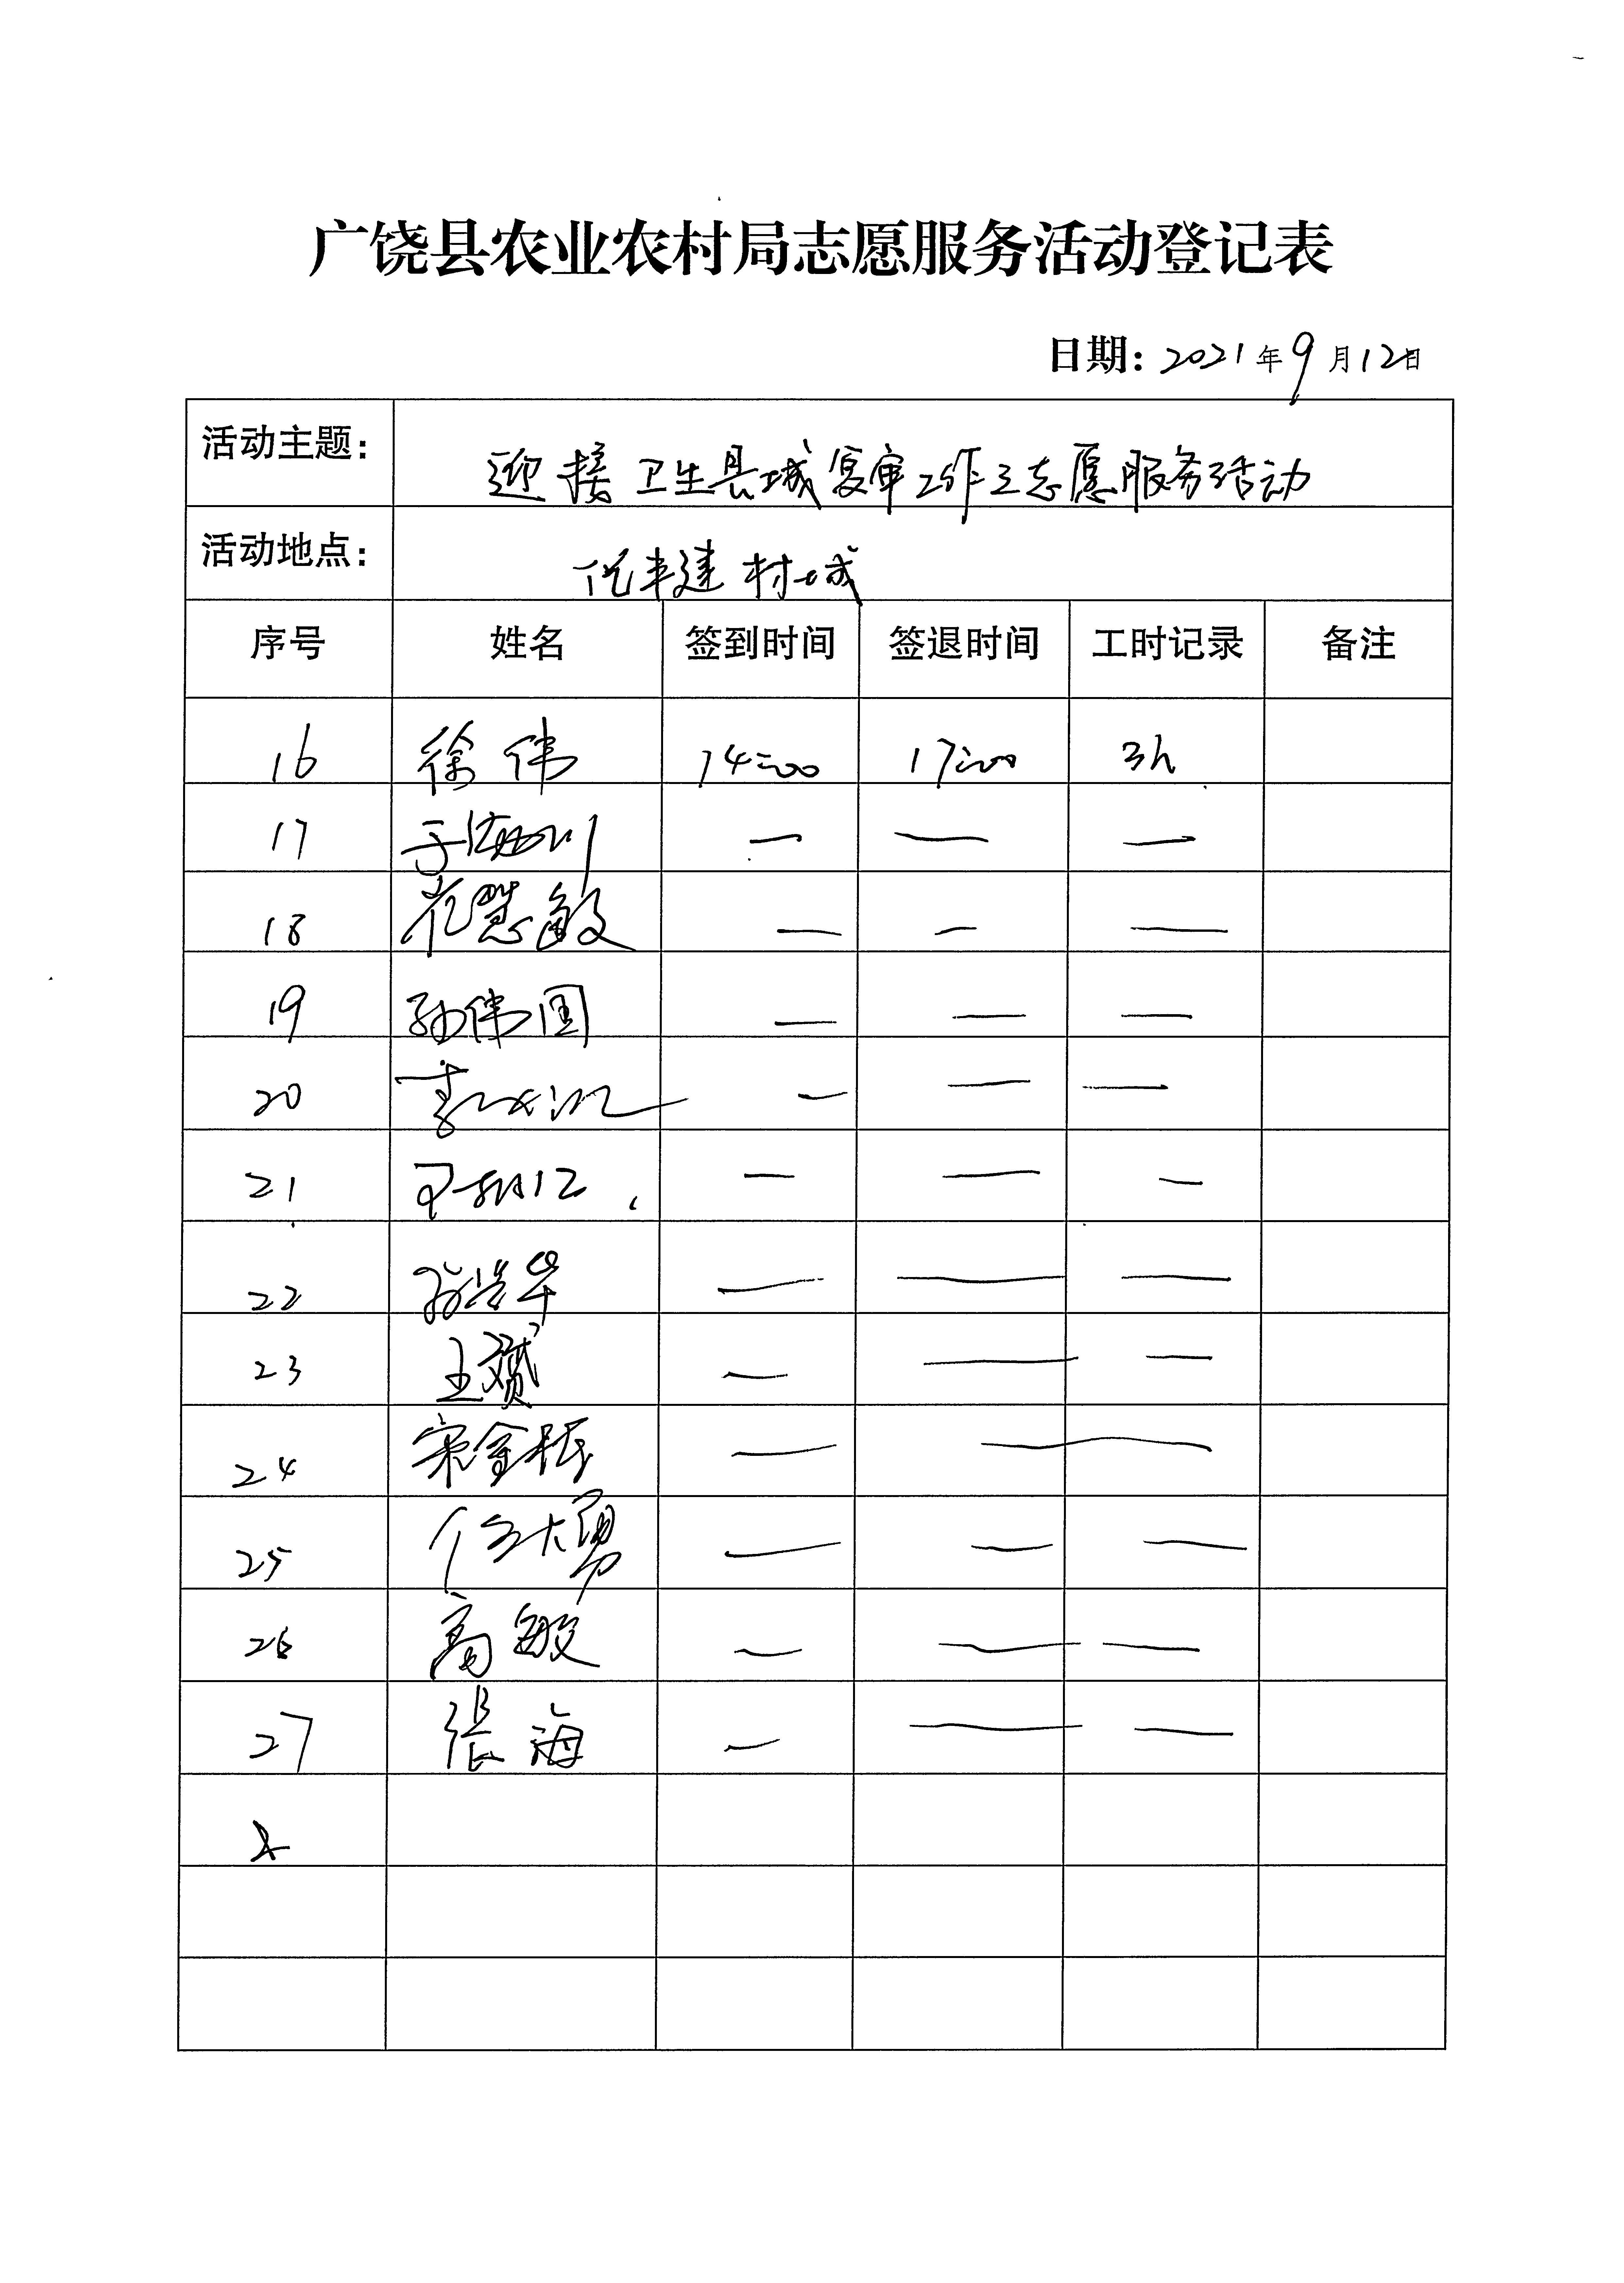 广饶县农业农村局志愿服务活动登记表
日期：2021年9月12日
活动主题： 迎接卫生县城复审工作之志愿服务活动
活动地点： 建材城
序号 姓名 签到时间 签退时间 工时记录 备注
16 徐伟 14:00 17:00 3h
17 于海川 — — —
18 花慧敏 — — —
19 孙伟国 — — —
20 — — —
21 — — —
22 — — —
23 王赟 — — —
24 宋金振 — —
25 任大勇 — — —
26 高敏 — — —
27 张海 — — —